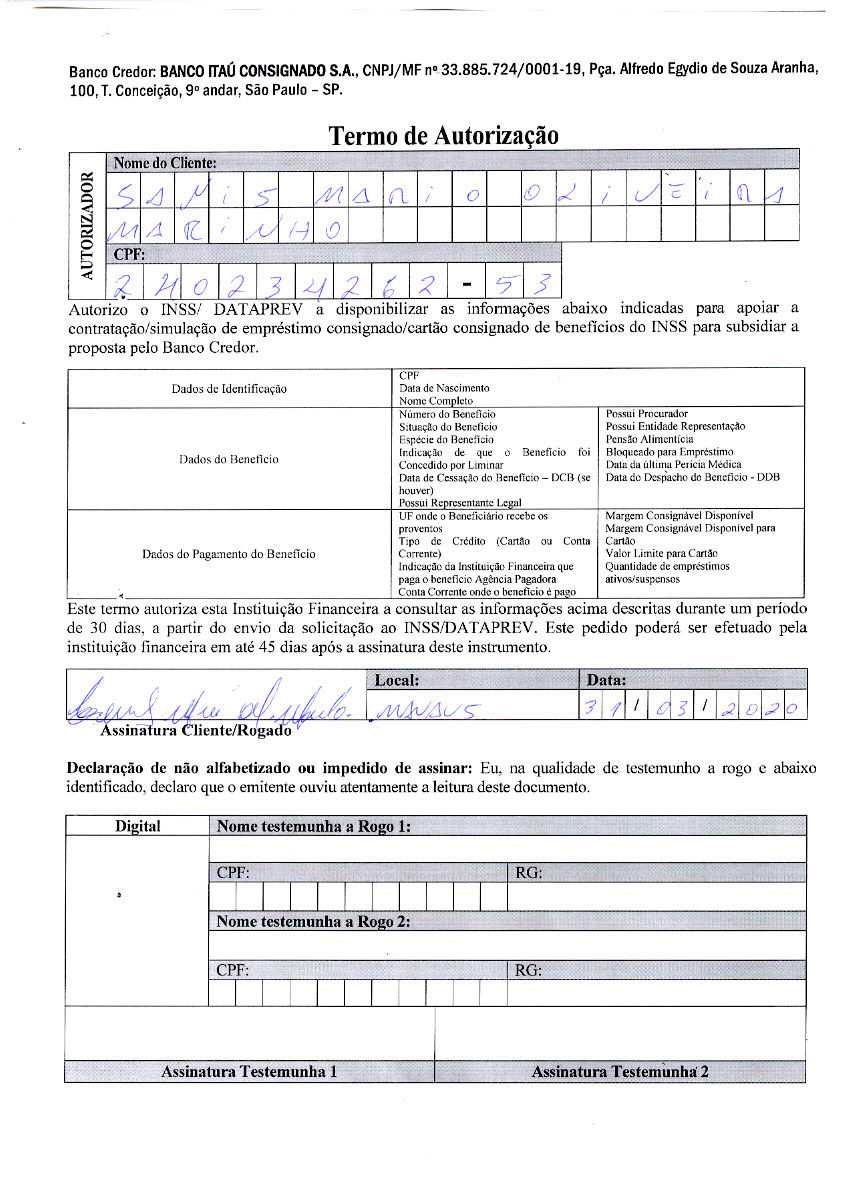 Banco Credor: BANCO ITAÚ CONSIGNADO S.A., CNPJ/MF nº 33.885.724/0001-19, Pça. Alfredo Egydio de Souza Aranha,
100, T. Conceição, 9º andar, São Paulo – SP.
Termo de Autorização
AUTORIZADOR
Nome do Cliente:
SAMIS MARIO OLIVEIRA
MARINHO
CPF:
240234262-53
Autorizo o INSS/ DATAPREV a disponibilizar as informações abaixo indicadas para apoiar a
contratação/simulação de empréstimo consignado/cartão consignado de benefícios do INSS para subsidiar a
proposta pelo Banco Credor.
Dados de Identificação
CPF
Data de Nascimento
Nome Completo
Dados do Benefício
Número do Benefício
Situação do Benefício
Espécie do Benefício
Indicação de que o Benefício foi
Concedido por Liminar
Data de Cessação do Benefício – DCB (se
houver)
Possui Representante Legal
Possui Procurador
Possui Entidade Representação
Pensão Alimentícia
Bloqueado para Empréstimo
Data da última Perícia Médica
Data do Despacho do Benefício - DDB
Dados do Pagamento do Benefício
UF onde o Beneficiário recebe os
proventos
Tipo de Crédito (Cartão ou Conta
Corrente)
Indicação da Instituição Financeira que
paga o benefício Agência Pagadora
Conta Corrente onde o benefício é pago
Margem Consignável Disponível
Margem Consignável Disponível para
Cartão
Valor Limite para Cartão
Quantidade de empréstimos
ativos/suspensos
Este termo autoriza esta Instituição Financeira a consultar as informações acima descritas durante um período
de 30 dias, a partir do envio da solicitação ao INSS/DATAPREV. Este pedido poderá ser efetuado pela
instituição financeira em até 45 dias após a assinatura deste instrumento.
Local:
Data:
MANAUS
31/03/2020
Assinatura Cliente/Rogado
Declaração de não alfabetizado ou impedido de assinar: Eu, na qualidade de testemunho a rogo e abaixo
identificado, declaro que o emitente ouviu atentamente a leitura deste documento.
Digital
Nome testemunha a Rogo 1:
CPF:
RG:
Nome testemunha a Rogo 2:
CPF:
RG:
Assinatura Testemunha 1
Assinatura Testemunha 2